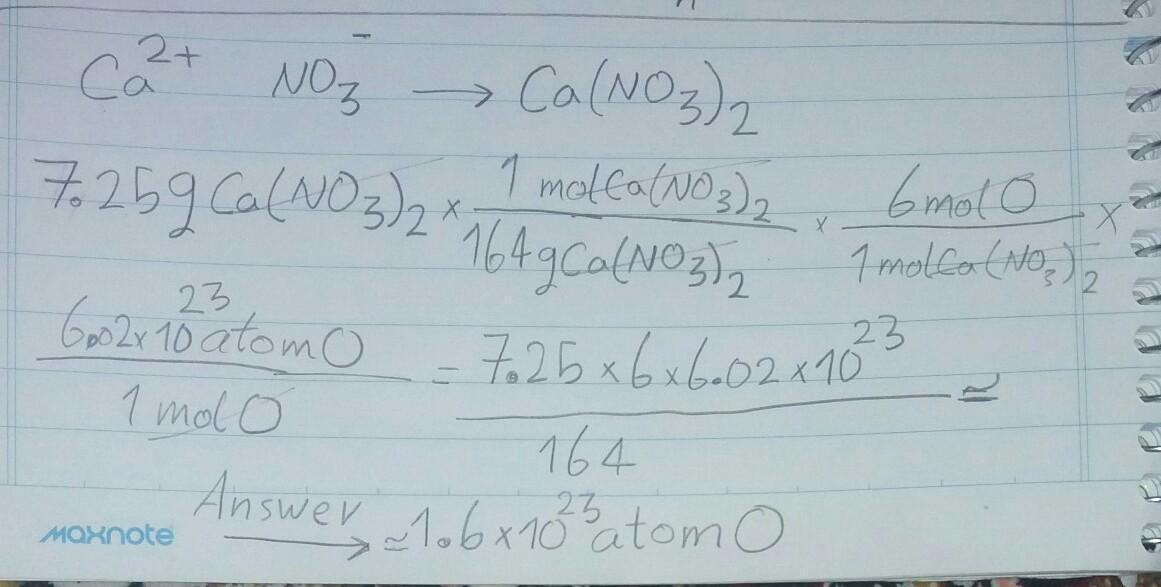 Ca²⁺ NO₃⁻ → Ca(NO₃)₂
7.25g Ca(NO₃)₂ × 1 mol Ca(NO₃)₂ / 164g Ca(NO₃)₂ × 6 mol O / 1 mol Ca(NO₃)₂ ×
6.02×10²³ atom O / 1 mol O = 7.25×6×6.02×10²³ / 164 ≃
Answer → ≃ 1.6×10²³ atom O
maxnote